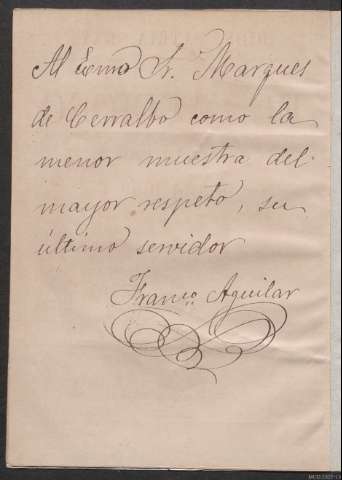 Al Exmo Sr. Marques
de Cerralbo como la
menor muestra del
mayor respeto, su
último servidor
Franco. Aguilar